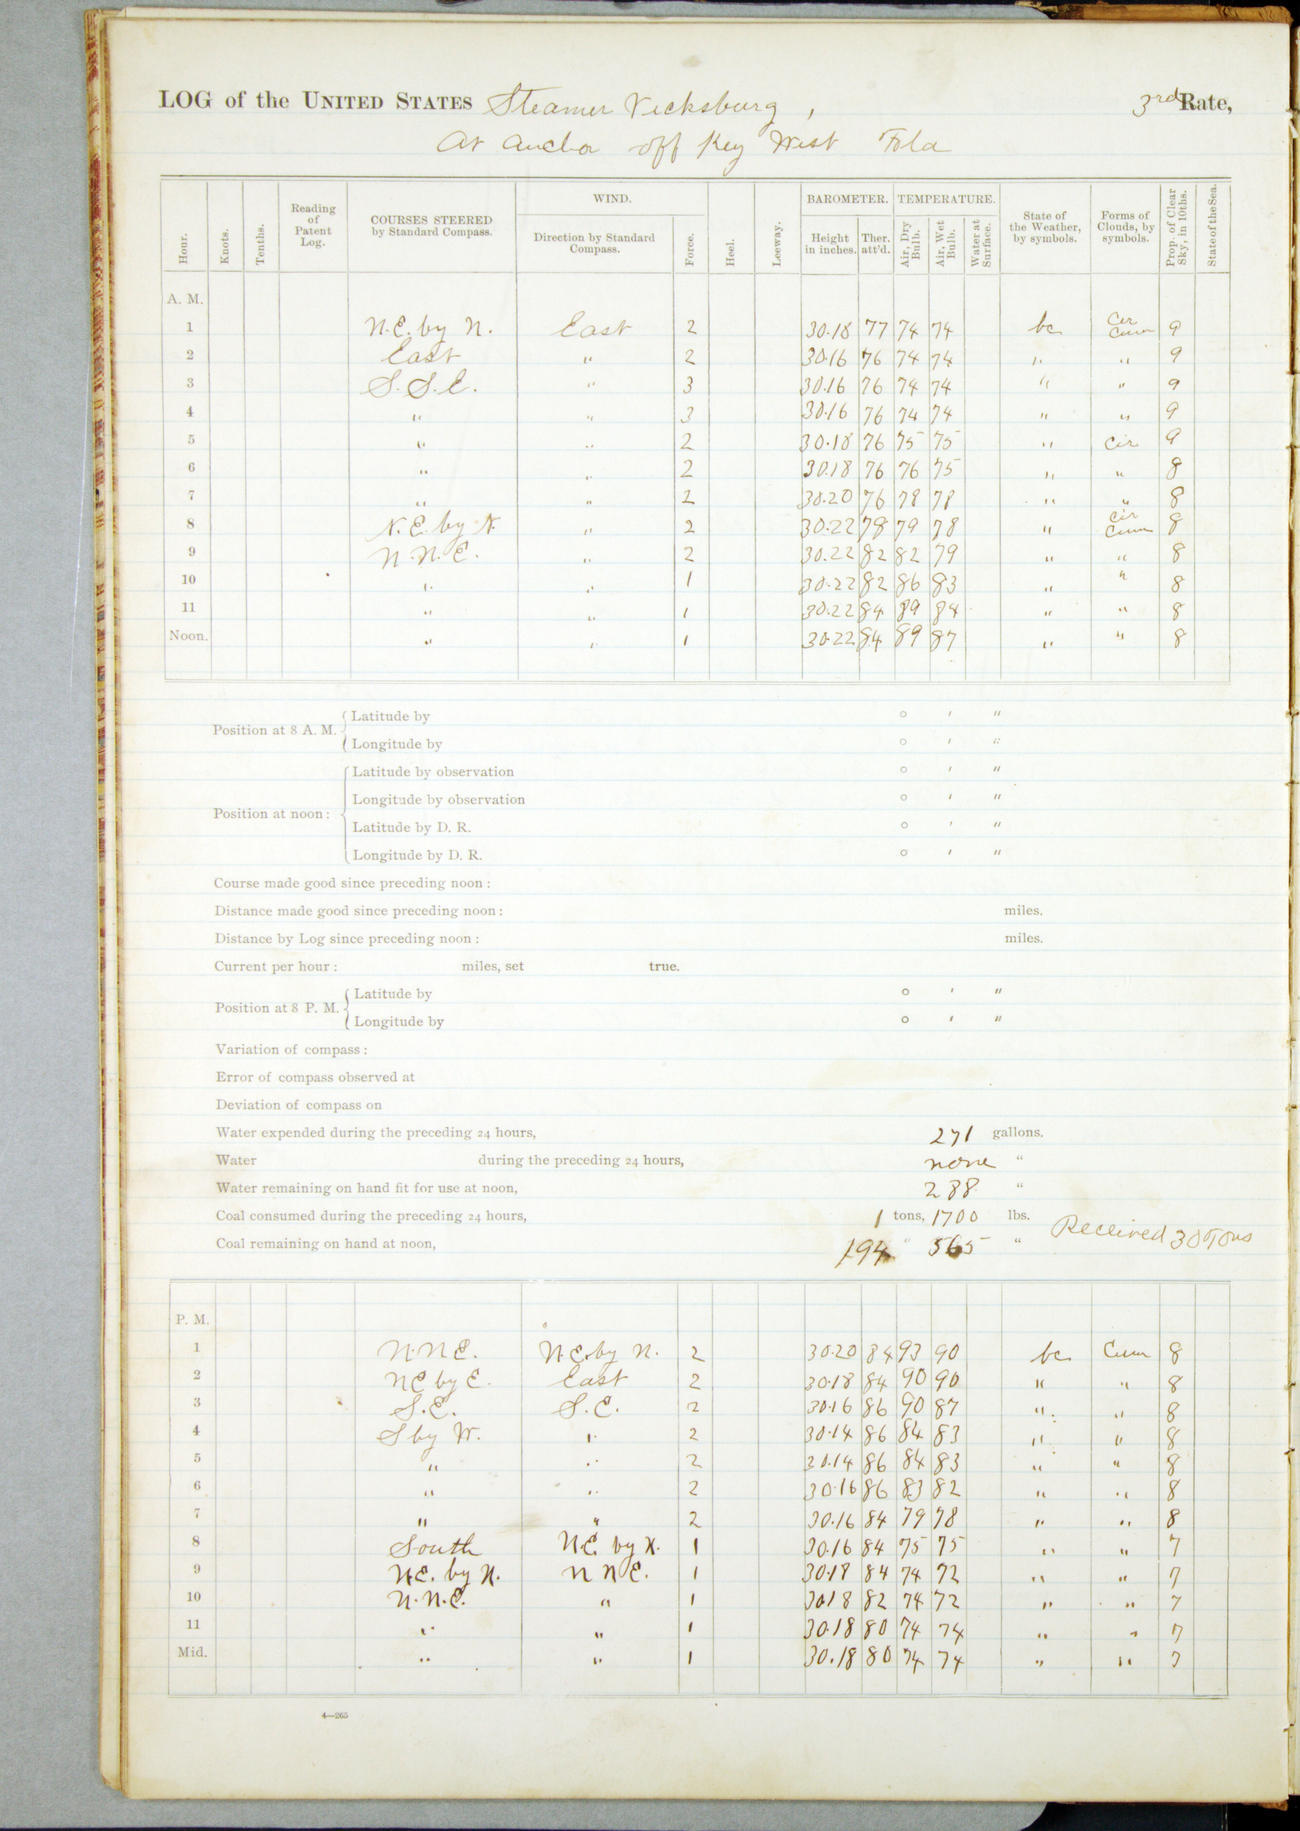 LOG of the UNITED STATES Steamer Vicksburg, 3rd Rate,
At Anchor off Key West Fla
Hour. Knots. Tenths. Reading of Patent Log. COURSES STEERED by Standard Compass. WIND. Direction by Standard Compass. Force. Heel. Leeway. BAROMETER. Height in inches. Ther. att'd. TEMPERATURE. Air, Dry Bulb. Air, Wet Bulb. Water at Surface. State of the Weather, by symbols. Forms of Clouds, by symbols. Prop. of Clear Sky, in 10ths. State of the Sea.
A. M.
1 N.E. by N. East 2 30.18 77 74 74 bc Cir Cum 9
2 East " 2 30.16 76 74 74 " " 9
3 S.S.E. " 3 30.16 76 74 74 " " 9
4 " " 3 30.16 76 74 74 " " 9
5 " " 2 30.18 76 75 75 " Cir 9
6 " " 2 30.18 76 76 75 " " 8
7 " " 2 30.20 76 78 78 " " 8
8 N.E. by N. " 2 30.22 78 79 78 " Cir Cum 8
9 N.N.E. " 2 30.22 82 82 79 " " 8
10 " " 1 30.22 82 86 83 " " 8
11 " " 1 30.22 84 89 84 " " 8
Noon. " " 1 30.22 84 89 87 " " 8
Position at 8 A. M. Latitude by ° ′ ″
Longitude by ° ′ ″
Position at noon: Latitude by observation ° ′ ″
Longitude by observation ° ′ ″
Latitude by D. R. ° ′ ″
Longitude by D. R. ° ′ ″
Course made good since preceding noon:
Distance made good since preceding noon: miles.
Distance by Log since preceding noon: miles.
Current per hour: miles, set true.
Position at 8 P. M. Latitude by ° ′ ″
Longitude by ° ′ ″
Variation of compass:
Error of compass observed at
Deviation of compass on
Water expended during the preceding 24 hours, 271 gallons.
Water during the preceding 24 hours, none "
Water remaining on hand fit for use at noon, 288 "
Coal consumed during the preceding 24 hours, 1 tons, 1700 lbs.
Coal remaining on hand at noon, 194 " 565 " Received 30 Tons
P. M.
1 N.N.E. N.E. by N. 2 30.20 84 93 90 bc Cum 8
2 NE by E. East 2 30.18 84 90 90 " " 8
3 S.E. S.E. 2 30.16 86 90 87 " " 8
4 S by W. " 2 30.14 86 84 83 " " 8
5 " " 2 30.14 86 84 83 " " 8
6 " " 2 30.16 86 83 82 " " 8
7 " " 2 30.16 84 79 78 " " 8
8 South N.E. by N. 1 30.16 84 75 75 " " 7
9 N.E. by N. N N E. 1 30.18 84 74 72 " " 7
10 N.N.E. " 1 30.18 82 74 72 " " 7
11 " " 1 30.18 80 74 74 " " 7
Mid. " " 1 30.18 80 74 74 " " 7
4—265